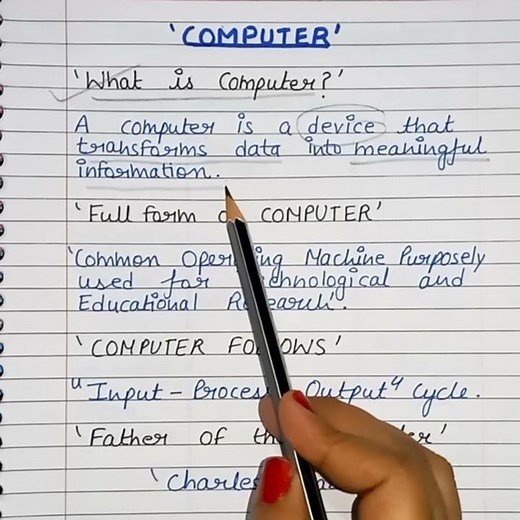 'COMPUTER'
'What is Computer?'
A computer is a device that
transforms data into meaningful
information.
'Full form COMPUTER'
'Common Operating Machine Purposely
used for Technological and
Educational Research'.
'COMPUTER FOLLOWS'
"Input - Process Output" Cycle.
'Father of
'Charles